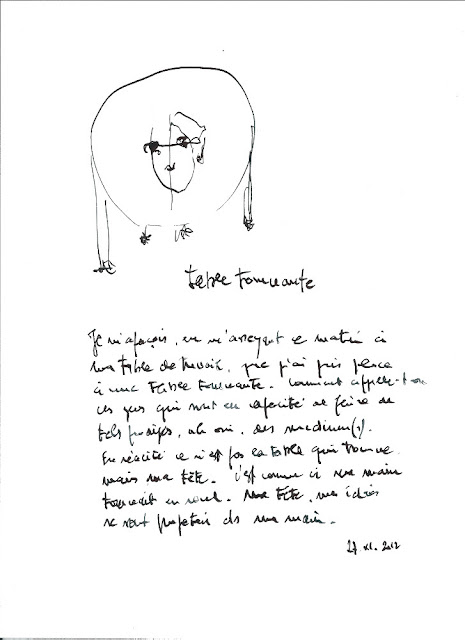 table tournante
Je m'aperçois, en m'asseyant ce matin à
ma table de travail, que j'ai pris place
à une table tournante. Comment appelle-t-on
ces gens qui sont en capacité de faire de
tels prodiges, ah oui, des medium(s).
En réalité ce n'est pas la table qui tourne
mais ma tête. C'est comme si ma main
tournait en rond. Ma tête, mes idées
se sont projetées ds ma main.
27. XI. 2012